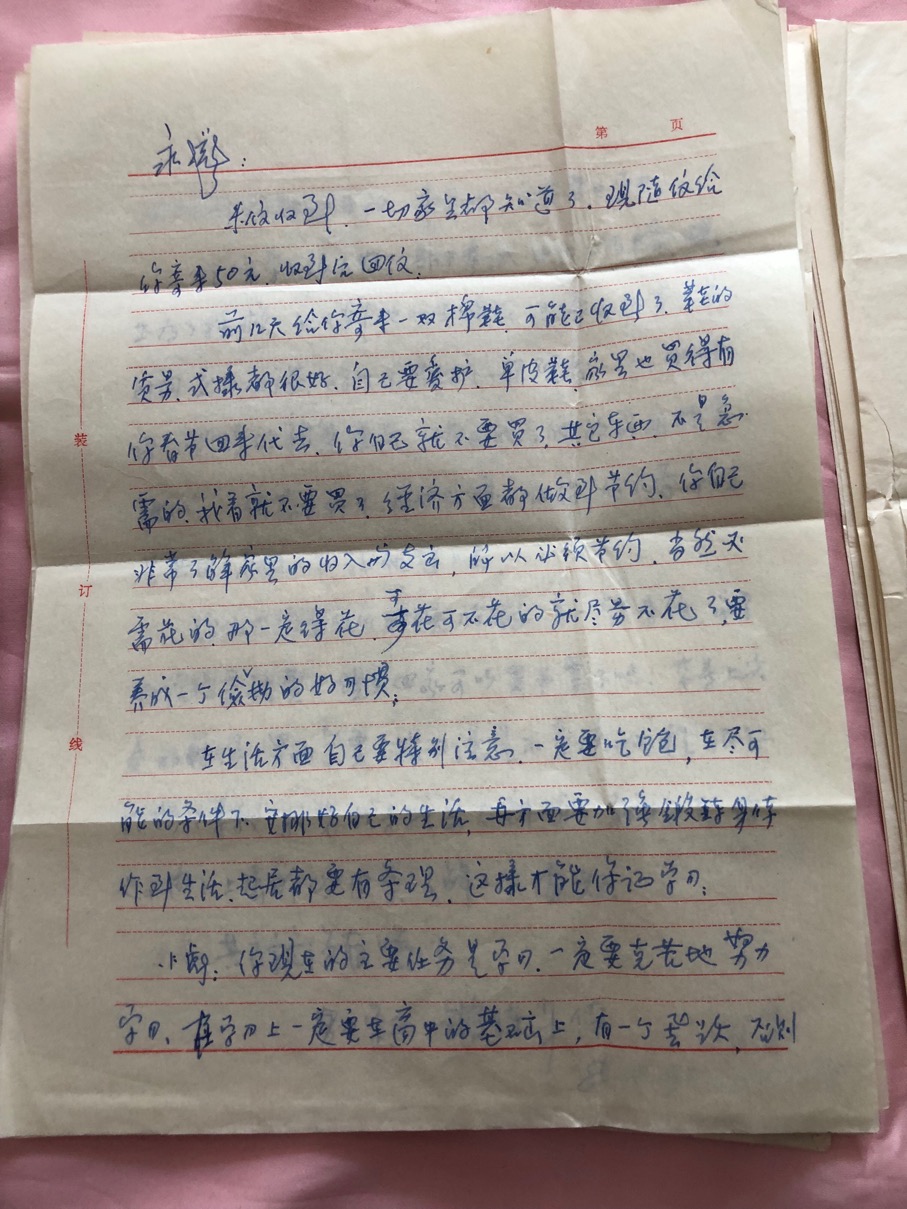 第 页
永
来信收到，一切家里都知道了。现随信给
你寄来50元，收到后回信。
前几天给你寄来一双棉鞋，可能已收到了，鞋的
质量、式样都很好，自己要爱护，单皮鞋，家里也买得有
你春节回来代去，你自己就不要买了，其它东西，不是急
需的，我看就不要买了，经济方面都做到节约，你自己
非常了解家里的收入与支出，所以必须节约，当然必
需花的，那一定得花，可花可不花的就尽量不花了，要
养成一个俭朴的好习惯；
在生活方面自己要特别注意，一定要吃饱，在尽可
能的条件下，安排好自己的生活，再方面要加强锻炼身体
作到生活、起居都要有条理，这样才能保证学习；
小 ：你现在的主要任务是学习，一定要克苦地努力
学习，在学习上一定要在高中的基础上，有一个 ，否则
装
订
线